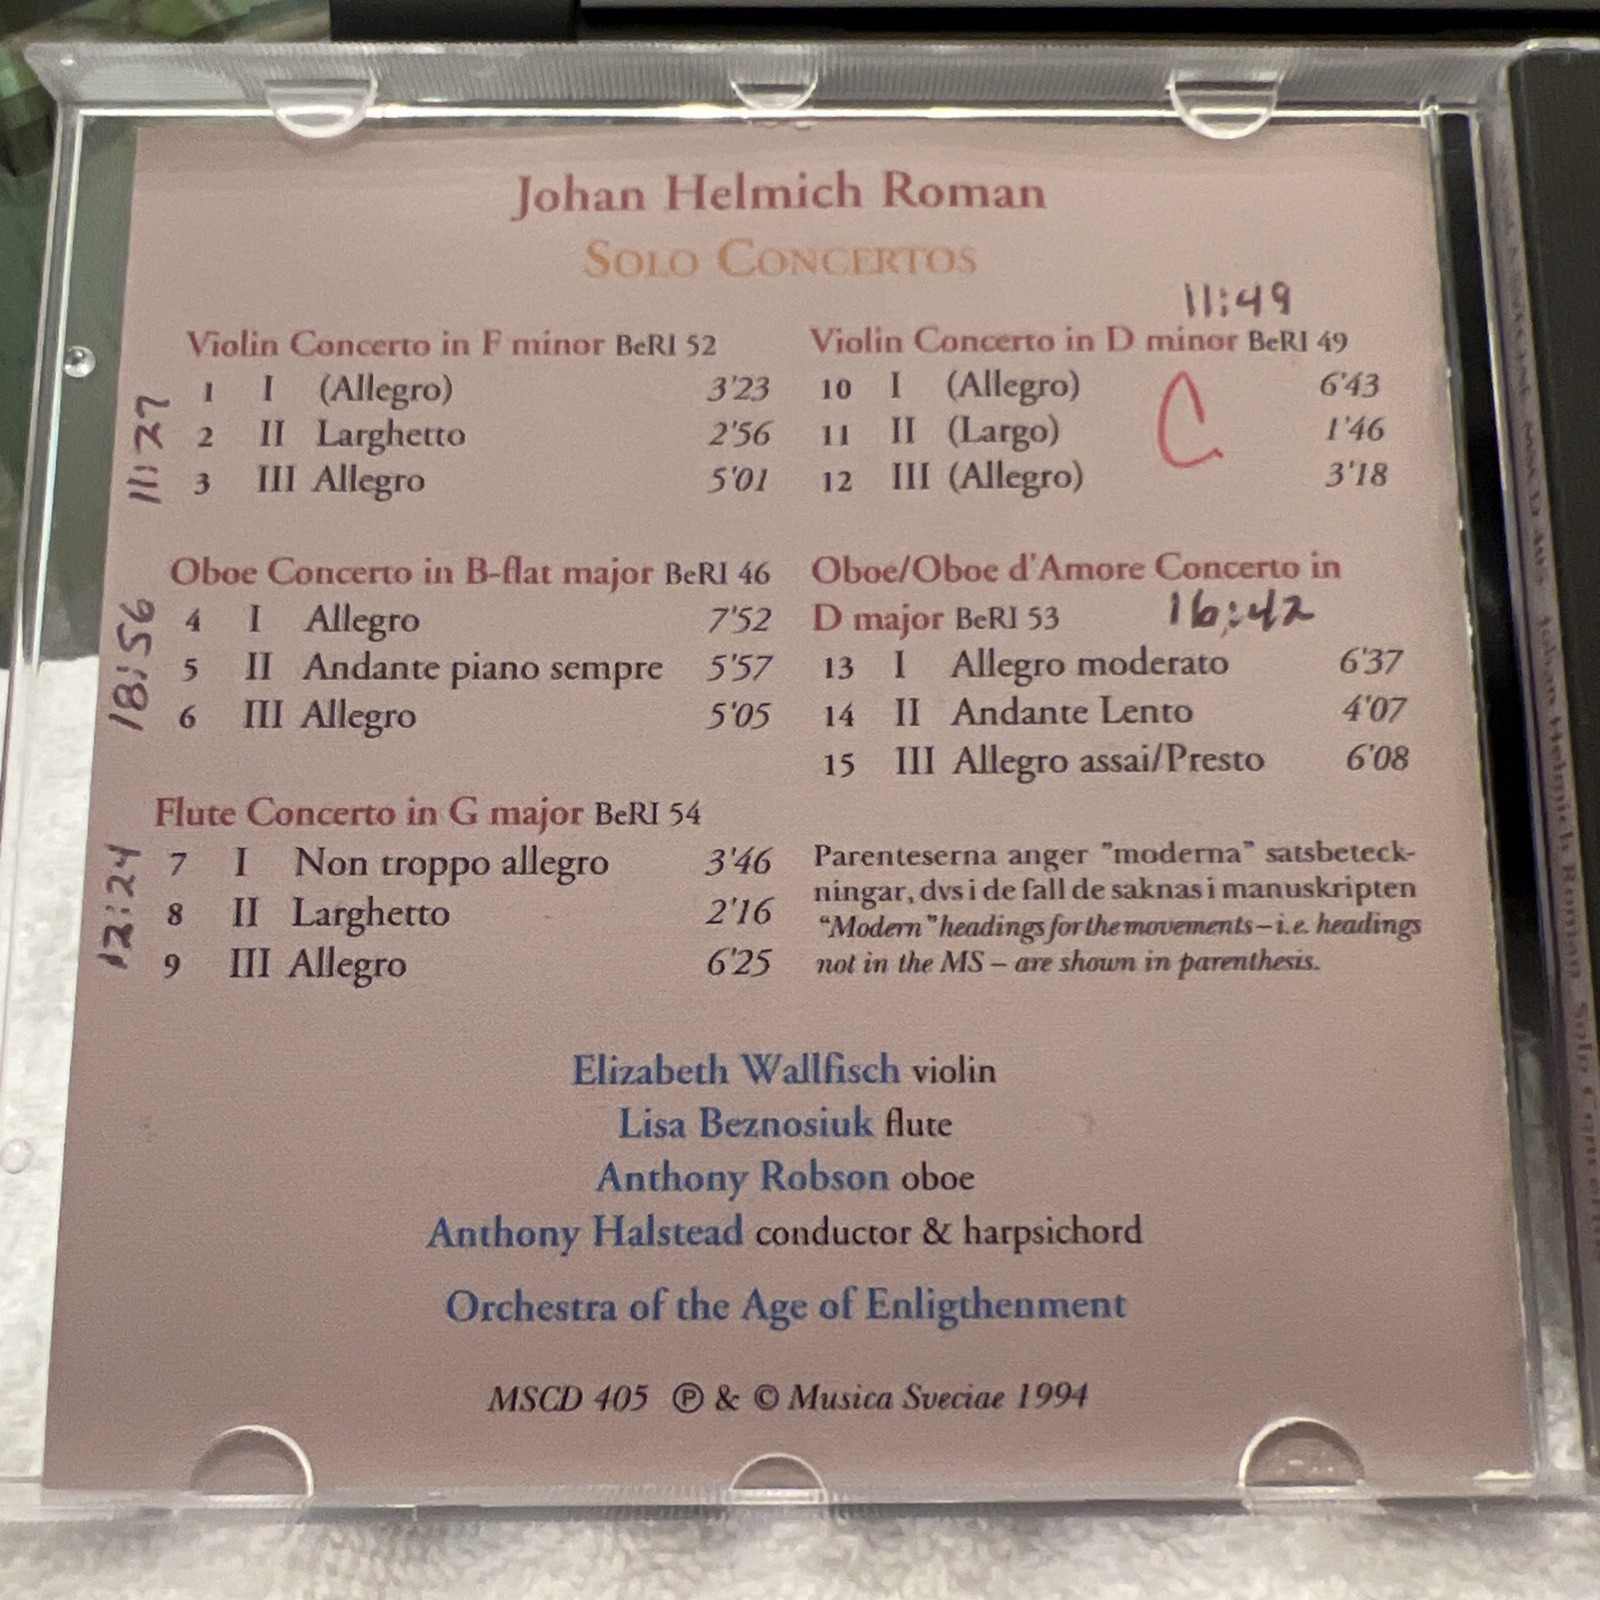 Johan Helmich Roman
Solo Concertos
Violin Concerto in F minor BeRI 52
1 I (Allegro) 3'23
2 II Larghetto 2'56
3 III Allegro 5'01
11:27
Oboe Concerto in B-flat major BeRI 46
4 I Allegro 7'52
5 II Andante piano sempre 5'57
6 III Allegro 5'05
18:56
Flute Concerto in G major BeRI 54
7 I Non troppo allegro 3'46
8 II Larghetto 2'16
9 III Allegro 6'25
12:24
11:49
Violin Concerto in D minor BeRI 49
10 I (Allegro) 6'43
11 II (Largo) 1'46
12 III (Allegro) 3'18
C
Oboe/Oboe d'Amore Concerto in
D major BeRI 53
16:42
13 I Allegro moderato 6'37
14 II Andante Lento 4'07
15 III Allegro assai/Presto 6'08
Parenteserna anger "moderna" satsbeteck-
ningar, dvs i de fall de saknas i manuskripten
"Modern" headings for the movements – i.e. headings
not in the MS – are shown in parenthesis.
Elizabeth Wallfisch violin
Lisa Beznosiuk flute
Anthony Robson oboe
Anthony Halstead conductor & harpsichord
Orchestra of the Age of Enligthenment
MSCD 405 ℗ & © Musica Sveciae 1994
MSCD 405 Johan Helmich Roman Solo